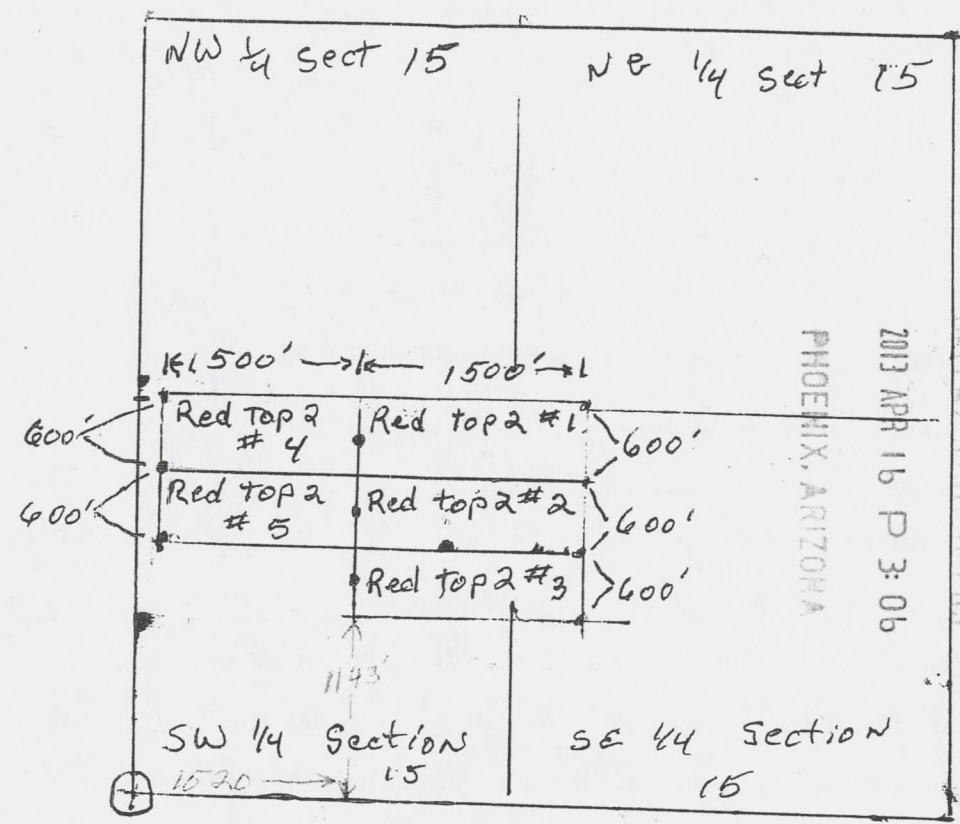 NW 1/4 Sect 15
NE 1/4 Sect 15
1500' 1500'
Red Top 2
# 4
Red top 2 #1
600'
600'
Red top 2
# 5
Red top 2 #2
600'
600'
Red top 2 #3
600'
1143'
SW 1/4 Section
15
SE 1/4 Section
15
1520
2013 APR 16 P 3:06
PHOENIX, ARIZONA